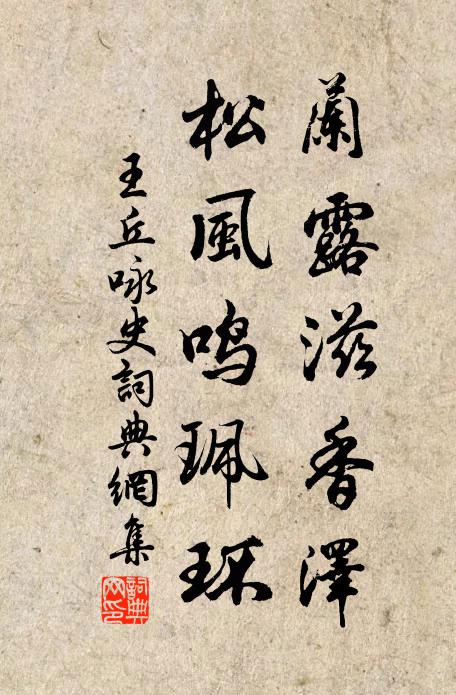 蘭露滋香澤
松風鳴珮环
王丘咏史詞典網集
詞典
网印